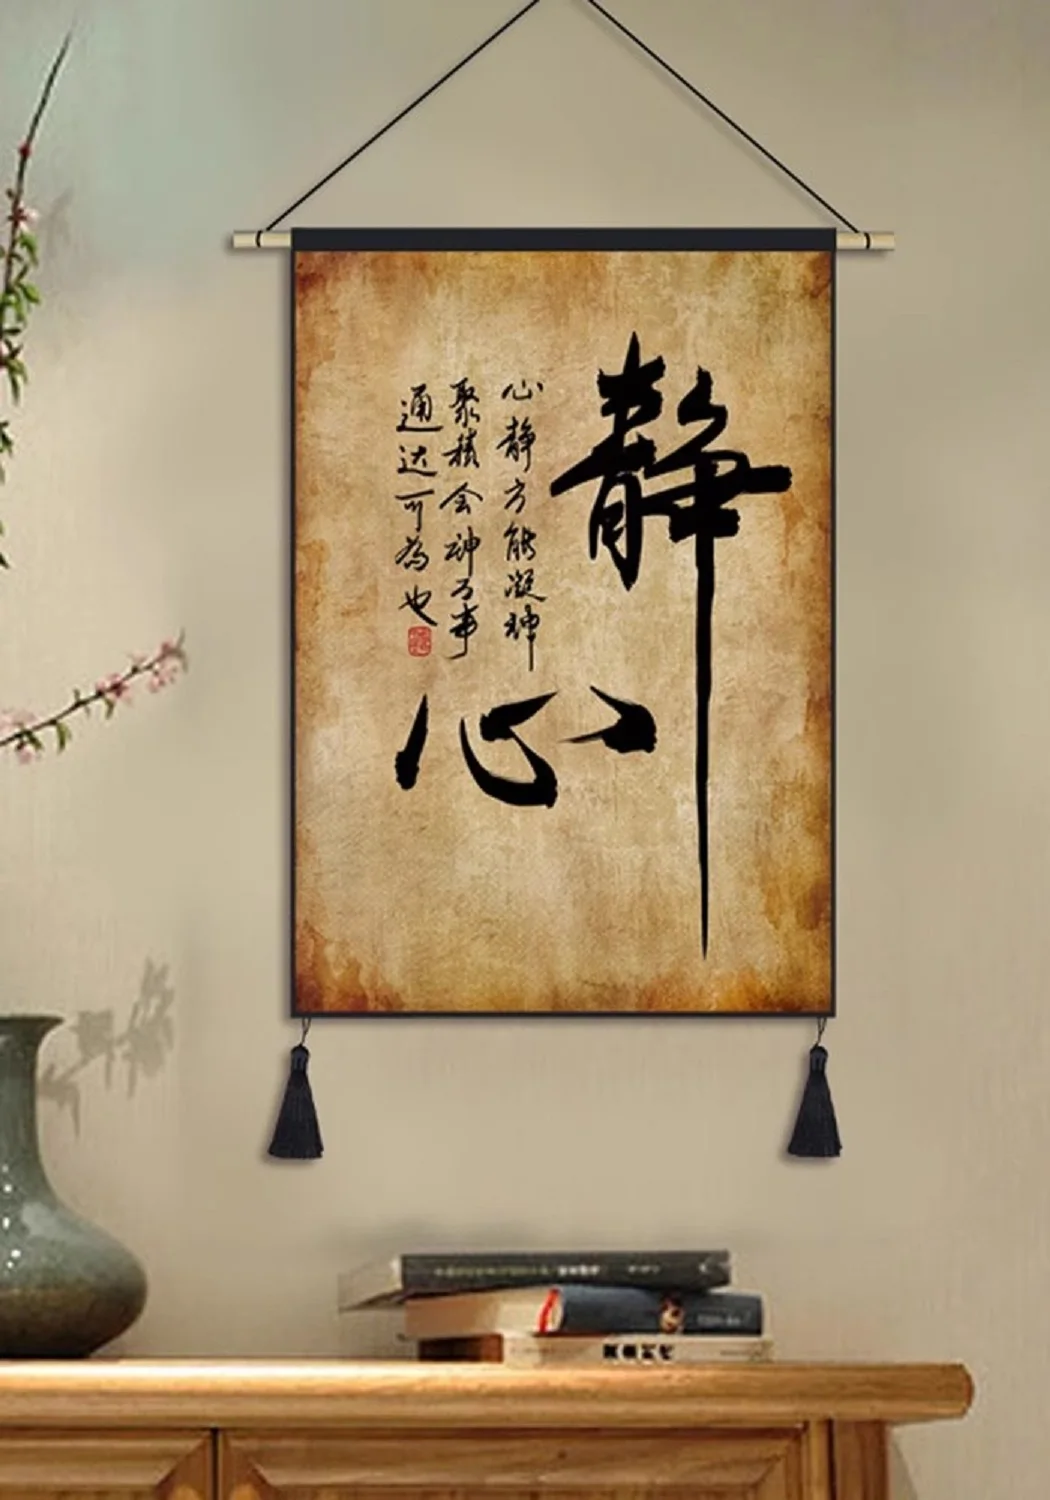 静
心
心静方能凝神
聚積会神万事
通达可為也